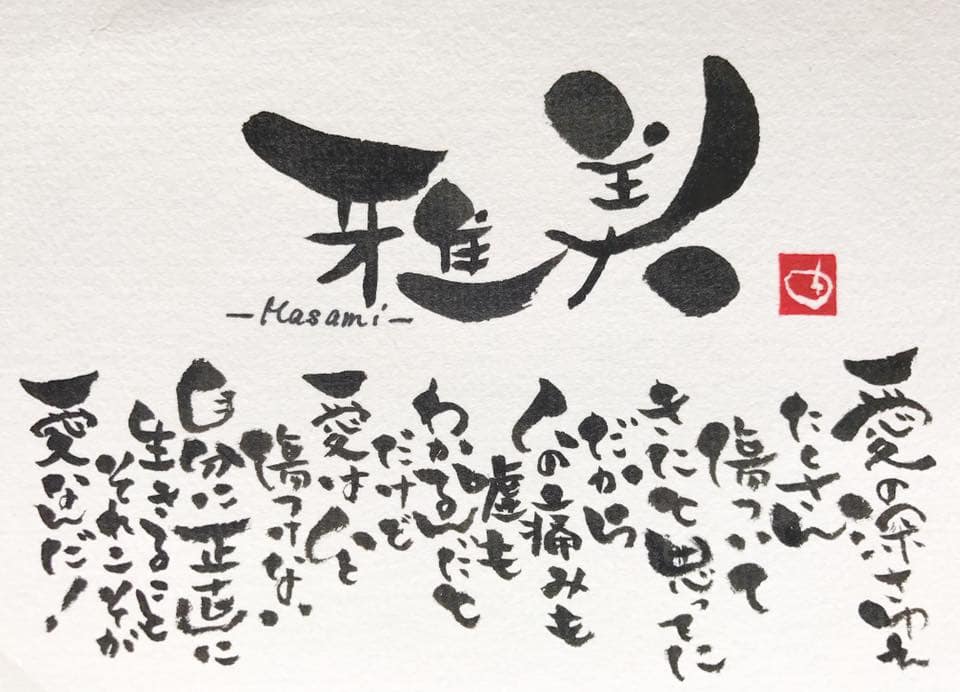 雅美
-Masami-
愛の深さゆえ
たくさん
傷ついて
きたて思ってた
だから
人の痛みも
嘘も
わかるんだと
だけど
愛は人を
傷つけない
自分に正直に
生きること
それこそが
愛なんだ！